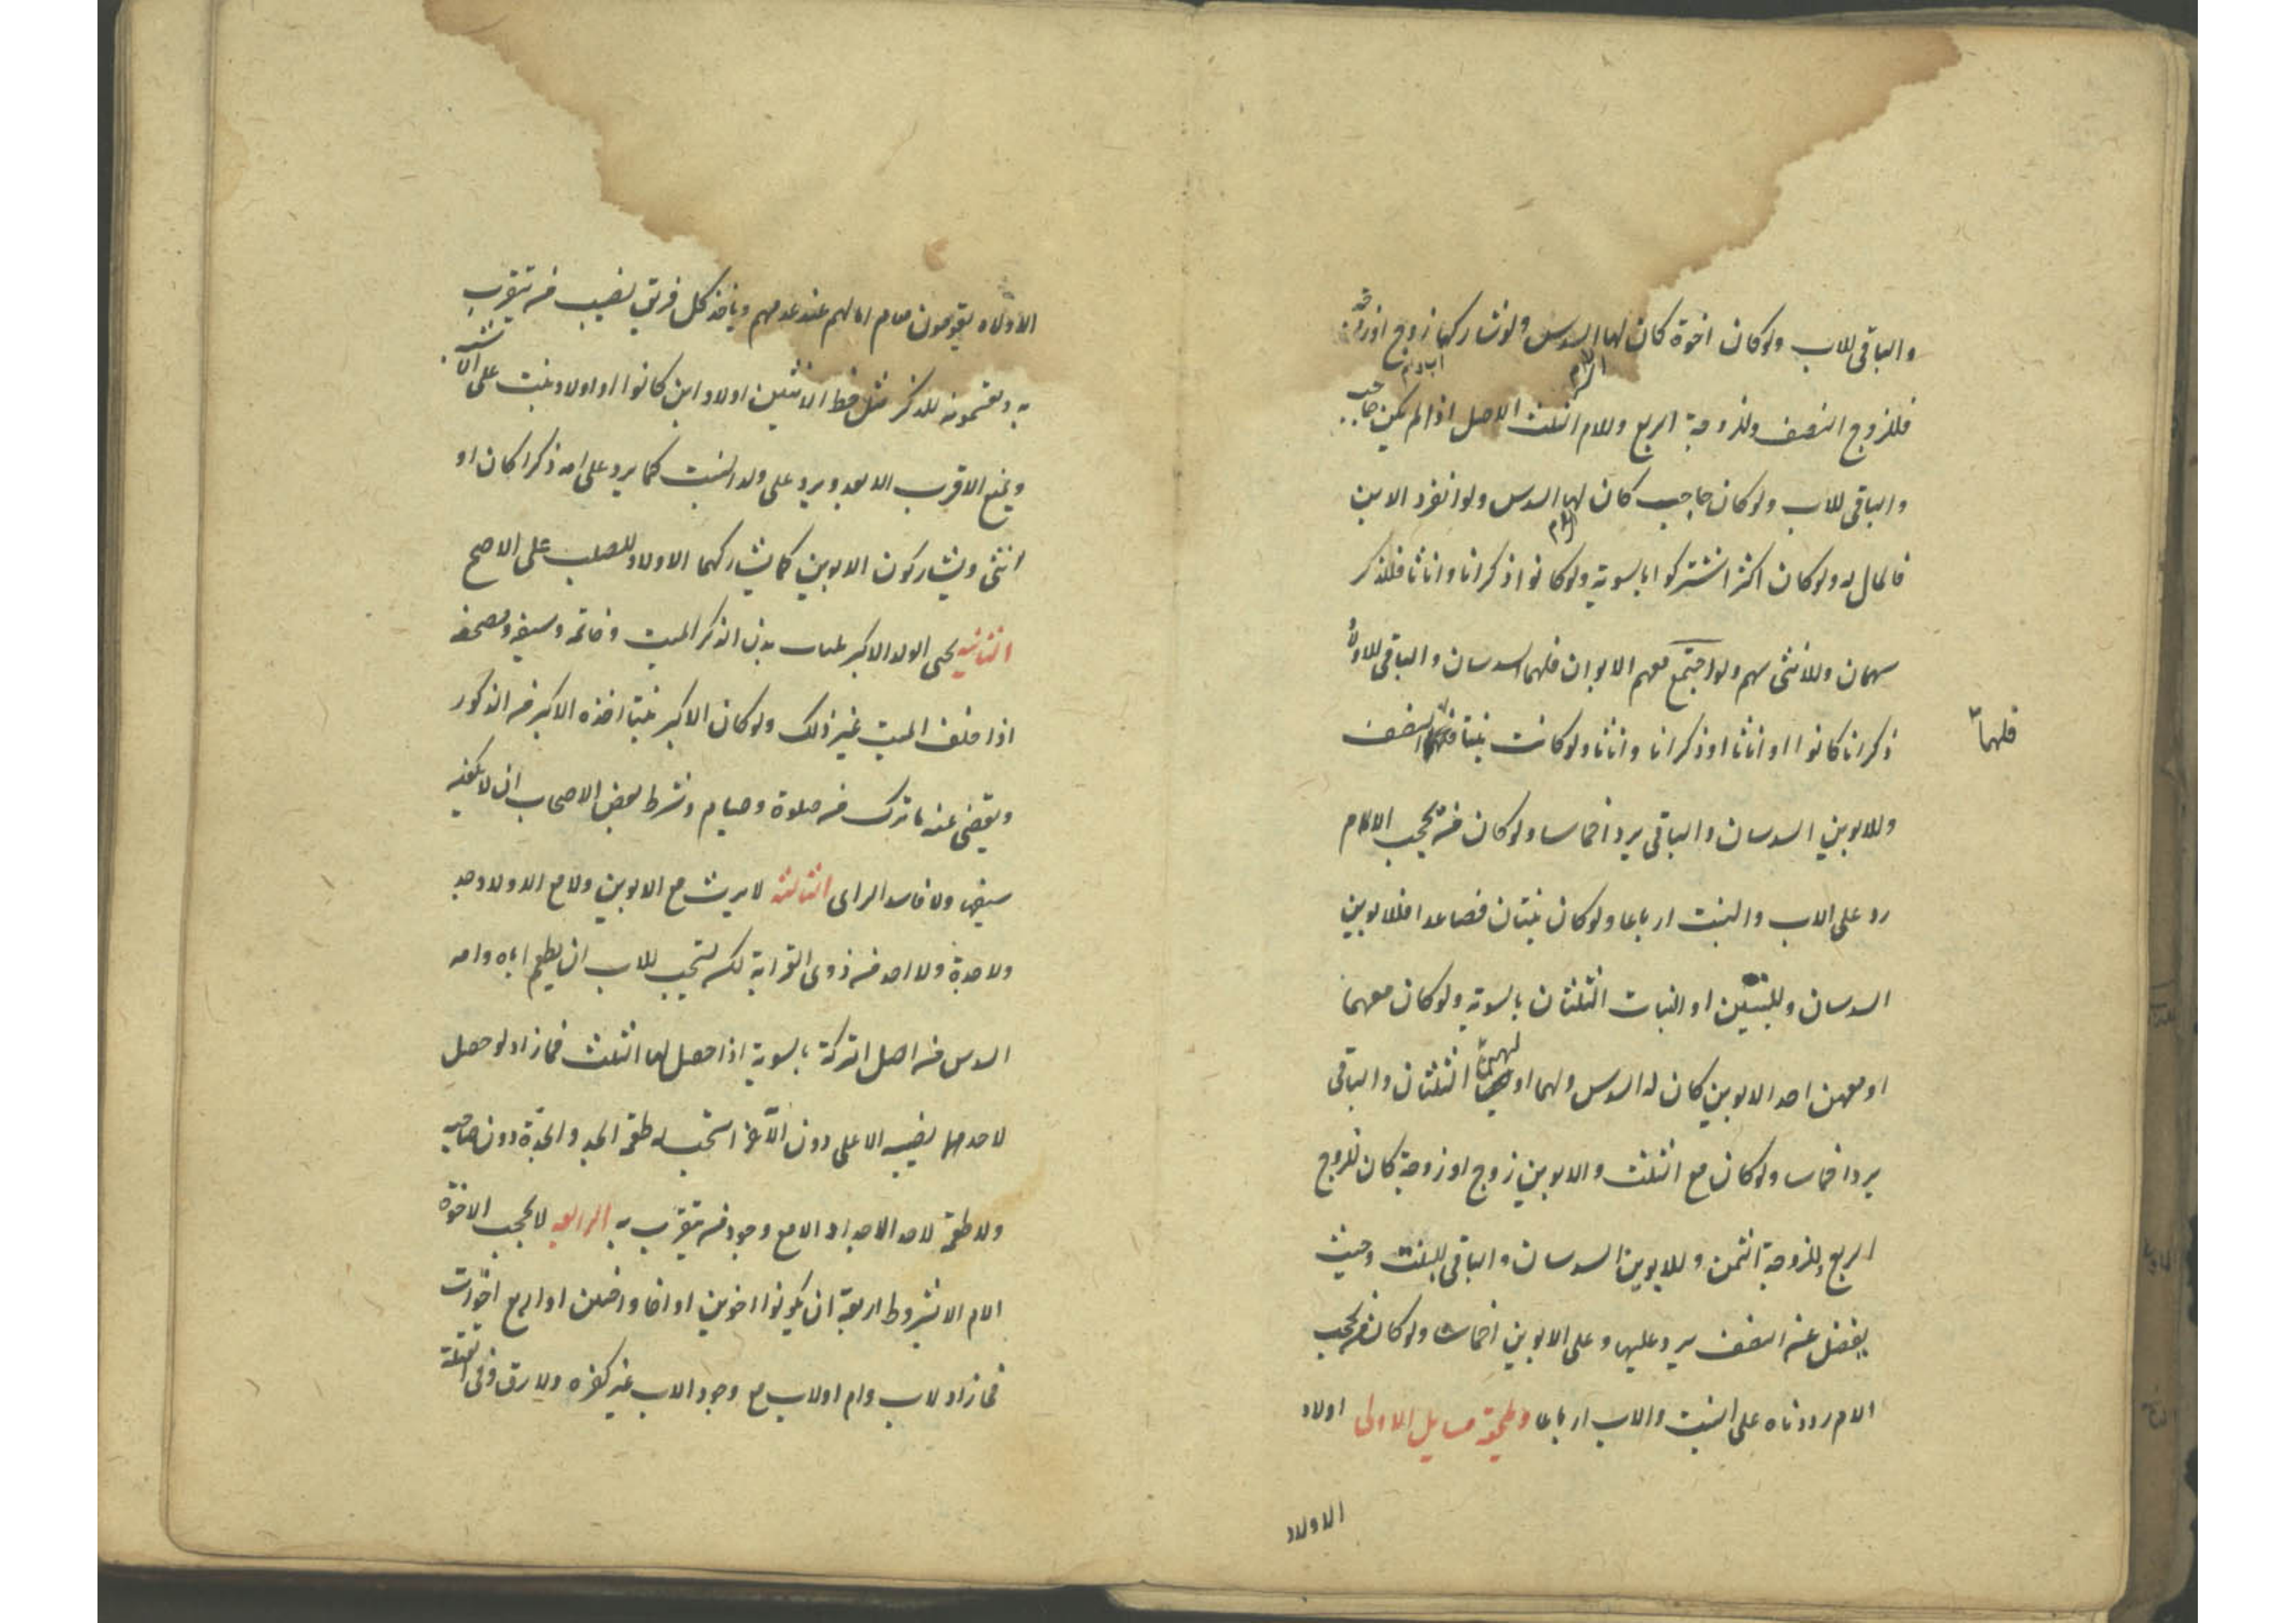 والباقی للاب ولو كان اخوة كان لها السدس ولو شاركها زوج او زوجة
فللزوج النصف وللزوجة الربع وللام الثلث الاصل اذا لم يكن حاجب
والباقی للاب ولو كان حاجب كان لها السدس ولو انفرد الابن
فالمال له ولو كان اكثر اشتركوا بالسوية ولو كانوا ذكرانا واناثا فللذكر
سهمان وللانثى سهم ولو اجتمع معهم الابوان فلهما السدسان والباقی للاولاد
ذكرانا كانوا او اناثا او ذكرانا واناثا ولو كانت بنتا فلها النصف
فلهما
وللابوين السدسان والباقی يرد اخماسا ولو كان من يحجب الام
رد على الاب والبنت ارباعا ولو كان بنتان فصاعدا فللابوين
السدسان وللبنتين او البنات الثلثان بالسوية ولو كان معهما
او معهن احد الابوين كان له السدس ولهما او لهن الثلثان والباقی
يرد اخماسا ولو كان مع البنت والابوين زوج او زوجة كان للزوج
الربع وللزوجة الثمن وللابوين السدسان والباقی للبنت وحيث
يفضل عن النصف يرد عليها وعلى الابوين اخماسا ولو كان من يحجب
الام رددناه على البنت والاب ارباعا ويلحقه مسايل الاولى اولاد
الاولاد
الاولاد يقومون مقام ابائهم عند عدمهم وياخذ كل فريق نصيب من يتقرب
به ويقسمونه للذكر مثل حظ الانثيين اولاد ابن كانوا او اولاد بنت على الاشبه
ويمنع الاقرب الابعد ويرد على ولد البنت كما يرد على امه ذكرا كان او
انثى ويشاركون الابوين كما يشاركهما الاولاد للصلب على الاصح
الثانية يحبى الولد الاكبر بثياب بدن الذكر الميت وخاتمه وسيفه ومصحفه
اذا خلف الميت غير ذلك ولو كان الاكبر بنتا اخذه الاكبر من الذكور
ويقضى عنه ما ترك من صلوة وصيام وشرط بعض الاصحاب ان لا يكون
سفيها ولا فاسد الراى الثالثة لا يرث مع الابوين ولا مع الاولاد جد
ولا جدة ولا احد من ذوى القرابة لكن يستحب للاب ان يطعم اباه وامه
السدس من اصل التركة بالسوية اذا حصل لهما الثلث فما زاد ولو حصل
لاحدهما نصيبه الاعلى دون الآخر استحب له طعمة الجد والجدة دون صاحبه
ولا طعمة لاحد الاجداد الا مع وجود من يتقرب به الرابعة لا يحجب الاخوة
الام الا بشروط اربعة ان يكونوا اخوين او اخا واختين او اربع اخوات
فما زاد لاب وام او لاب مع وجود الاب غير كفره ولا رق وفى القتلة